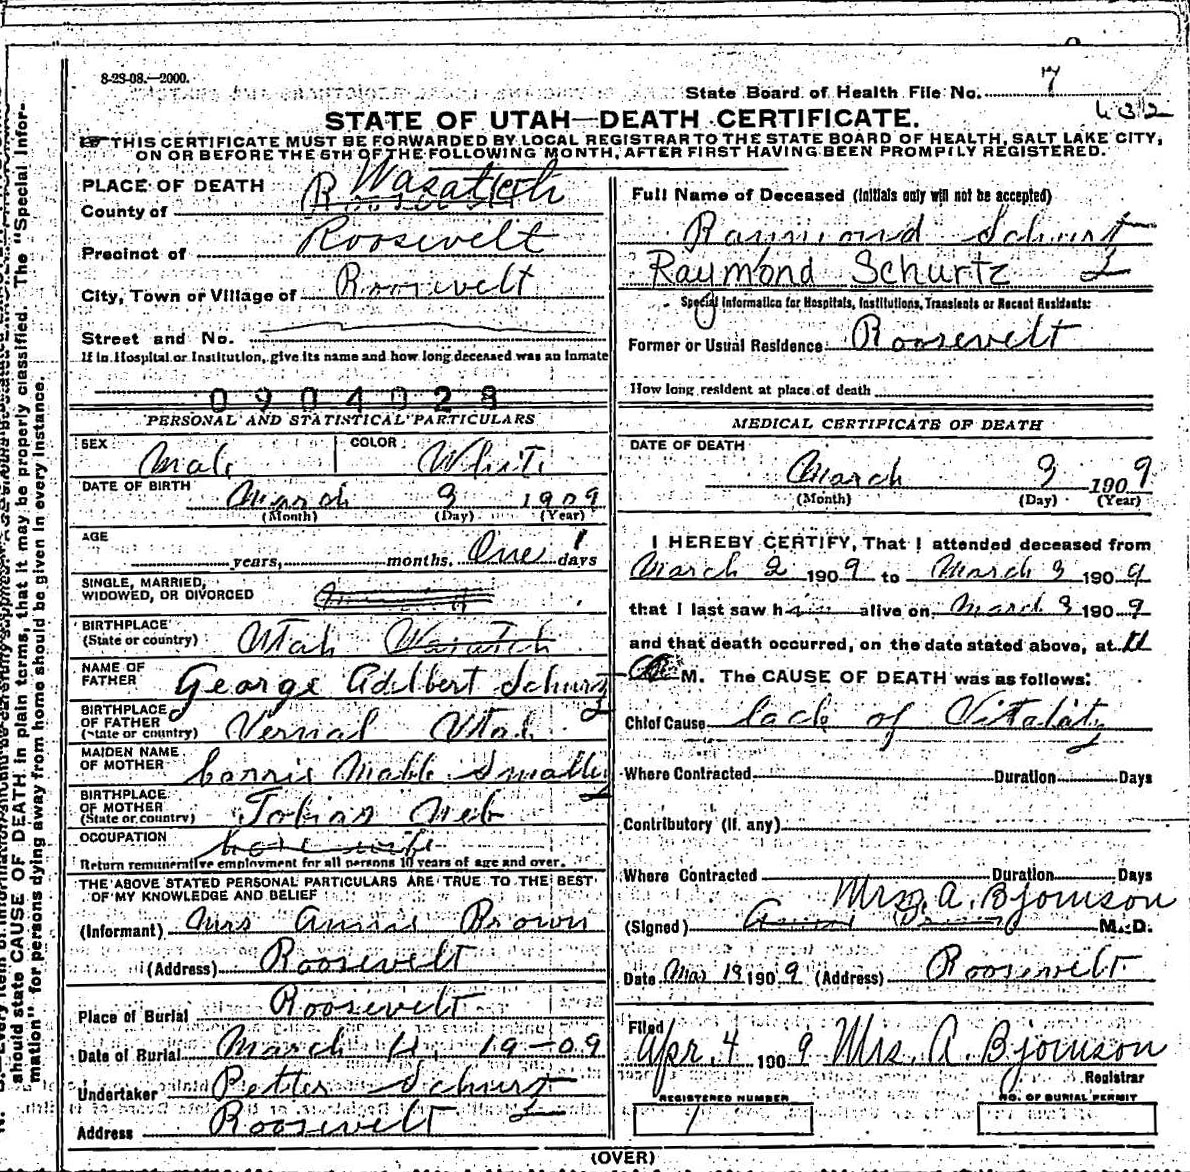 8-23-08.—2000.
State Board of Health File No. 7
432
STATE OF UTAH—DEATH CERTIFICATE.
THIS CERTIFICATE MUST BE FORWARDED BY LOCAL REGISTRAR TO THE STATE BOARD OF HEALTH, SALT LAKE CITY,
ON OR BEFORE THE 5TH OF THE FOLLOWING MONTH, AFTER FIRST HAVING BEEN PROMPTLY REGISTERED.
PLACE OF DEATH
County of Wasatch
Precinct of Roosevelt
City, Town or Village of Roosevelt
Street and No.
If in Hospital or Institution, give its name and how long deceased was an inmate
0904028
PERSONAL AND STATISTICAL PARTICULARS
SEX Male COLOR White
DATE OF BIRTH March 3 1909
(Month) (Day) (Year)
AGE years, months, One 1 days
SINGLE, MARRIED,
WIDOWED, OR DIVORCED
BIRTHPLACE
(State or country) Utah Wasatch
NAME OF
FATHER George Adelbert Schurz
BIRTHPLACE
OF FATHER
(State or country) Vernal Utah
MAIDEN NAME
OF MOTHER Corrie Mable Smalley
BIRTHPLACE
OF MOTHER
(State or country) Tobias Neb
OCCUPATION
Return remunerative employment for all persons 10 years of age and over.
THE ABOVE STATED PERSONAL PARTICULARS ARE TRUE TO THE BEST
OF MY KNOWLEDGE AND BELIEF
(Informant) Mrs Annie Brown
(Address) Roosevelt
Place of Burial Roosevelt
Date of Burial March 4, 19-09
Undertaker Petter Schurz
Address Roosevelt
Full Name of Deceased (Initials only will not be accepted)
Raymond Schurz
Raymond Schurtz
Special Information for Hospitals, Institutions, Transients or Recent Residents:
Former or Usual Residence Roosevelt
How long resident at place of death
MEDICAL CERTIFICATE OF DEATH
DATE OF DEATH
March 3 1909
(Month) (Day) (Year)
I HEREBY CERTIFY, That I attended deceased from
March 2 1909 to March 3 1909
that I last saw him alive on March 3 1909
and that death occurred, on the date stated above, at 11
M. The CAUSE OF DEATH was as follows:
Chief Cause lack of Vitality
Where Contracted Duration Days
Contributory (If any)
Where Contracted Duration Days
Mrs. A. Bjornson
(Signed) M.D.
Date Mar 19 1909 (Address) Roosevelt
Filed
Apr. 4 1909 Mrs. A. Bjornson
Registrar
REGISTERED NUMBER
1
NO. OF BURIAL PERMIT
(OVER)
should state CAUSE OF DEATH in plain terms, that it may be properly classified. The "Special Infor-
mation" for persons dying away from home should be given in every instance.